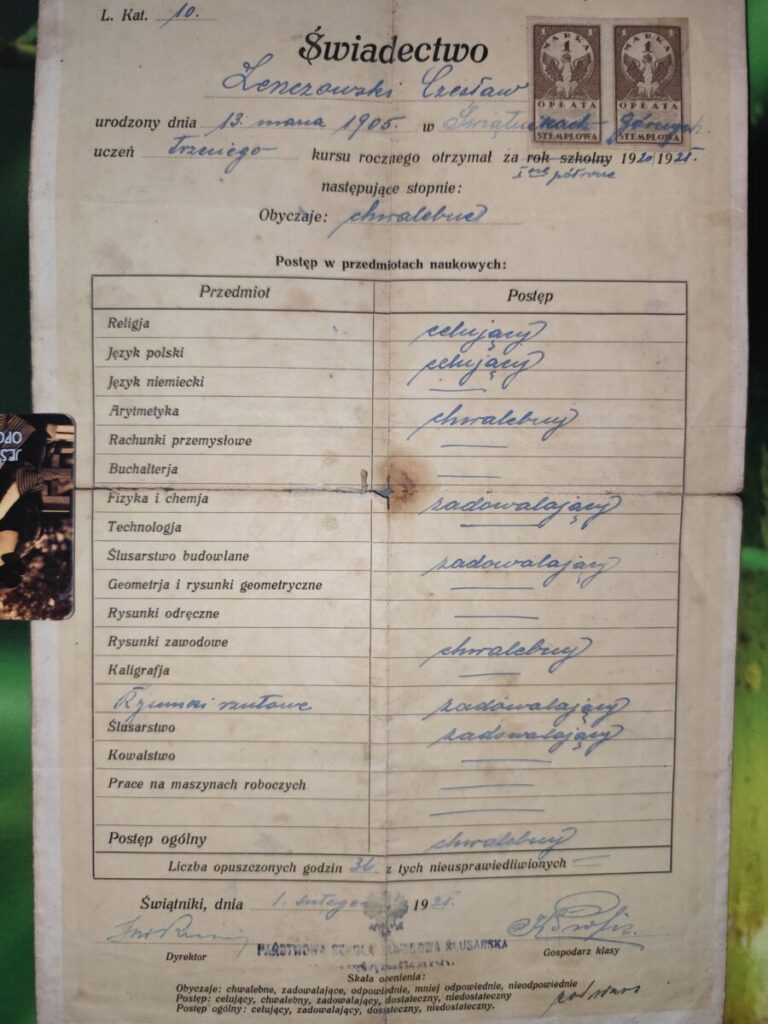 L. Kat. 10.
Świadectwo
MARKA 1 OPŁATA STEMPLOWA
MARKA 1 OPŁATA STEMPLOWA
Zenczowski Czesław
urodzony dnia 13. marca 1905. w Świątnikach górnych.
uczeń trzeciego kursu rocznego otrymał za rok szkolny 1920/1921.
I sze półrocze
następujące stopnie:
Obyczaje: chwalebne
Postęp w przedmiotach naukowych:
Przedmiot Postęp
Religja celujący
Język polski celujący
Język niemiecki —
Arytmetyka chwalebny
Rachunki przemysłowe —
Buchalterja —
Fizyka i chemja zadowalający
Technologja —
Ślusarstwo budowlane zadowalający
Geometrja i rysunki geometryczne —
Rysunki odręczne —
Rysunki zawodowe chwalebny
Kaligrafja —
Rysunki rzutowe zadowalający
Ślusarstwo zadowalający
Kowalstwo —
Prace na maszynach roboczych —
—
Postęp ogólny chwalebny
Liczba opuszczonych godzin 36. z tych nieusprawiedliwionych —
Świątniki, dnia 1. lutego 1921.
Dyrektor
PAŃSTWOWA SZKOŁA ZAWODOWA ŚLUSARSKA
Gospodarz klasy
Skala ocenienia:
Obyczaje: chwalebne, zadowalające, odpowiednie, mniej odpowiednie, nieodpowiednie
Postęp: celujący, chwalebny, zadowalający, dostateczny, niedostateczny
Postęp ogólny: celujący, zadowalający, dostateczny, niedostateczny.